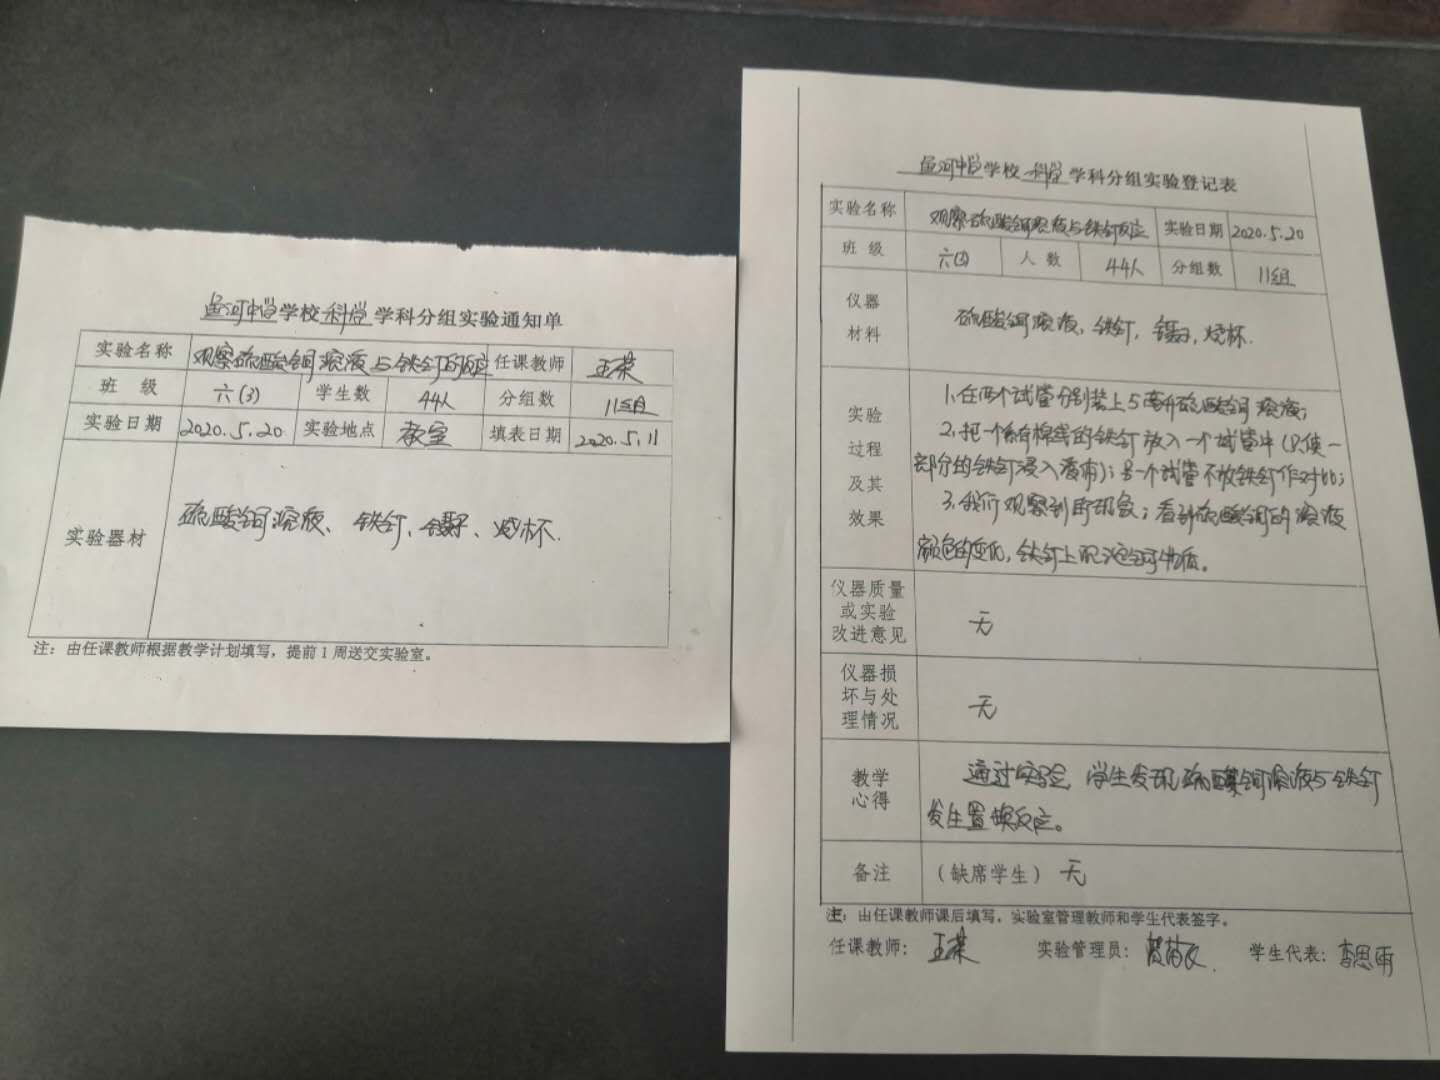 鱼河中学学校 科学 学科分组实验通知单
实验名称 观察硫酸铜溶液与铁钉的反应 任课教师 王荣
班 级 六(3) 学生数 44人 分组数 11组
实验日期 2020.5.20 实验地点 教室 填表日期 2020.5.11
实验器材 硫酸铜溶液、铁钉、镊子、烧杯.
注：由任课教师根据教学计划填写，提前1周送交实验室。
鱼河中学学校 科学 学科分组实验登记表
实验名称 观察硫酸铜溶液与铁钉反应 实验日期 2020.5.20
班 级 六(3) 人 数 44人 分组数 11组
仪器
材料
硫酸铜溶液，铁钉，镊子，烧杯.
实验
过程
及其
效果
1、在两个试管分别装上5毫升硫酸铜溶液；
2、把一个系有棉线的铁钉放入一个试管中（只使一
部分的铁钉浸入液体）；另一个试管不放铁钉作对比；
3、我们观察到的现象；看到硫酸铜的溶液
颜色的变化，铁钉上
仪器质量
或实验
改进意见
无
仪器损
坏与处
理情况
无
教学
心得
通过实验，学生发现硫酸铜溶液与铁钉
发生置换反应。
备注 （缺席学生） 无
注：由任课教师课后填写，实验室管理教师和学生代表签字。
任课教师： 王荣 实验管理员： 学生代表： 李思雨